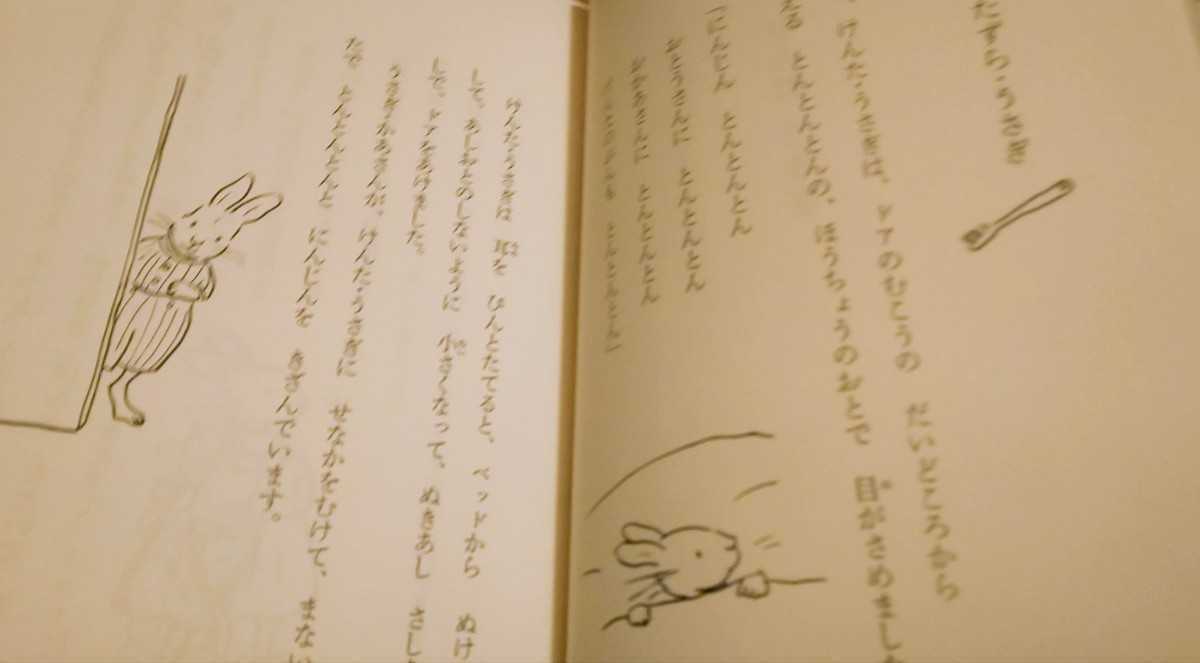 たずら・うさぎ
けんた・うさぎは、ドアのむこうの だいどころから
る とんとんとんの、ほうちょうのおとで 目がさめまし
「にんじん とんとんとん
おとうさんに とんとんとん
おかあさんに とんとんとん
とんとんとん」
けんた・うさぎは 耳を ぴんとたてると、ベッドから ぬけ
して、あしおとのしないように 小さくなって、ぬきあし さし
して、ドアをあけました。
うさぎかあさんが、けんた・うさぎに せなかをむけて、まない
たで とんとんとんと にんじんを きざんでいます。